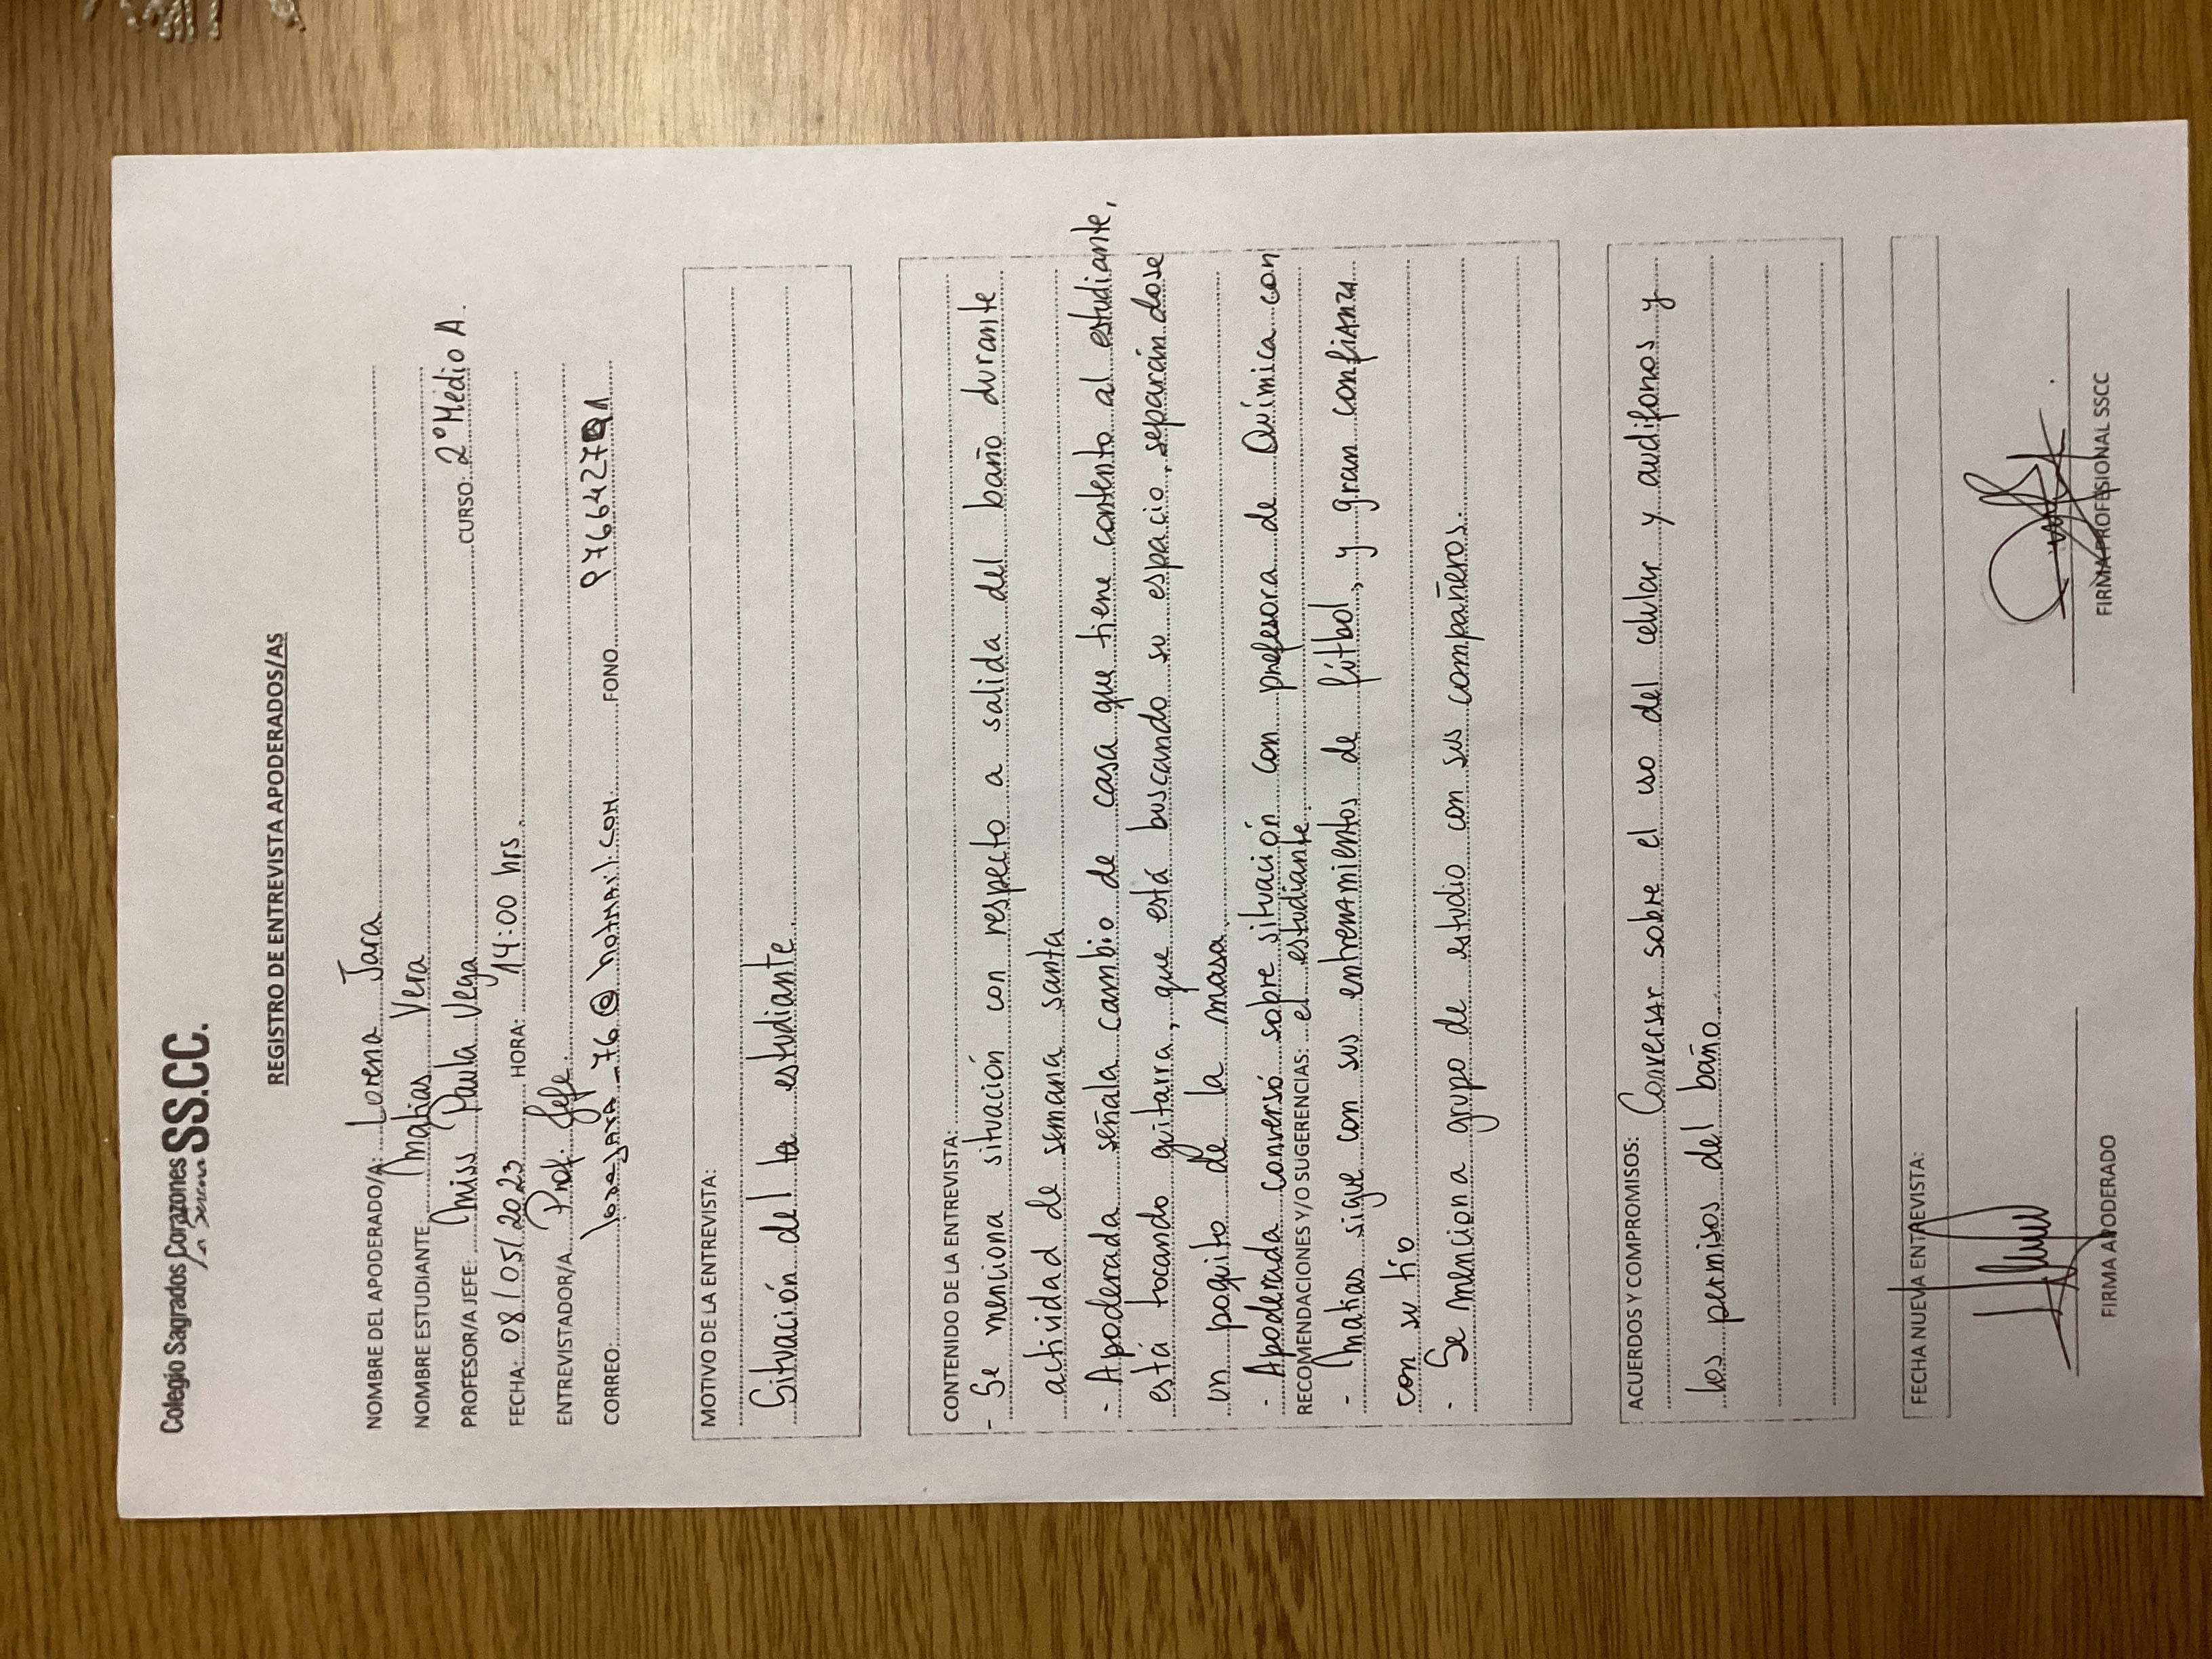 Colegio Sagrados Corazones SS.CC.
La Serena
REGISTRO DE ENTREVISTA APODERADOS/AS
NOMBRE DEL APODERADO/A: Lorena Jara
NOMBRE ESTUDIANTE Matias Vera
PROFESOR/A JEFE: Miss Paula Vega CURSO: 2° Medio A.
FECHA: 08/05/2023 HORA: 14:00 hrs.
ENTREVISTADOR/A Prof. Jefe.
CORREO: @hotmail.com FONO
MOTIVO DE LA ENTREVISTA:
Situación del la estudiante
CONTENIDO DE LA ENTREVISTA:
- Se menciona situación con respecto a salida del baño durante
actividad de semana santa
- Apoderada señala cambio de casa que tiene contento al estudiante,
está tocando guitarra, que está buscando su espacio, separándose
un poquito de la masa.
- Apoderada conversó sobre situación con profesora de Química con
RECOMENDACIONES Y/O SUGERENCIAS: el estudiante.
- Matias sigue con sus entrenamientos de fútbol, y gran confianza
con su tío
- Se menciona grupo de estudio con sus compañeros.
ACUERDOS Y COMPROMISOS: Conversar sobre el uso del celular y audifonos y
los permisos del baño.
FECHA NUEVA ENTREVISTA:
FIRMA APODERADO FIRMA PROFESIONAL SSCC